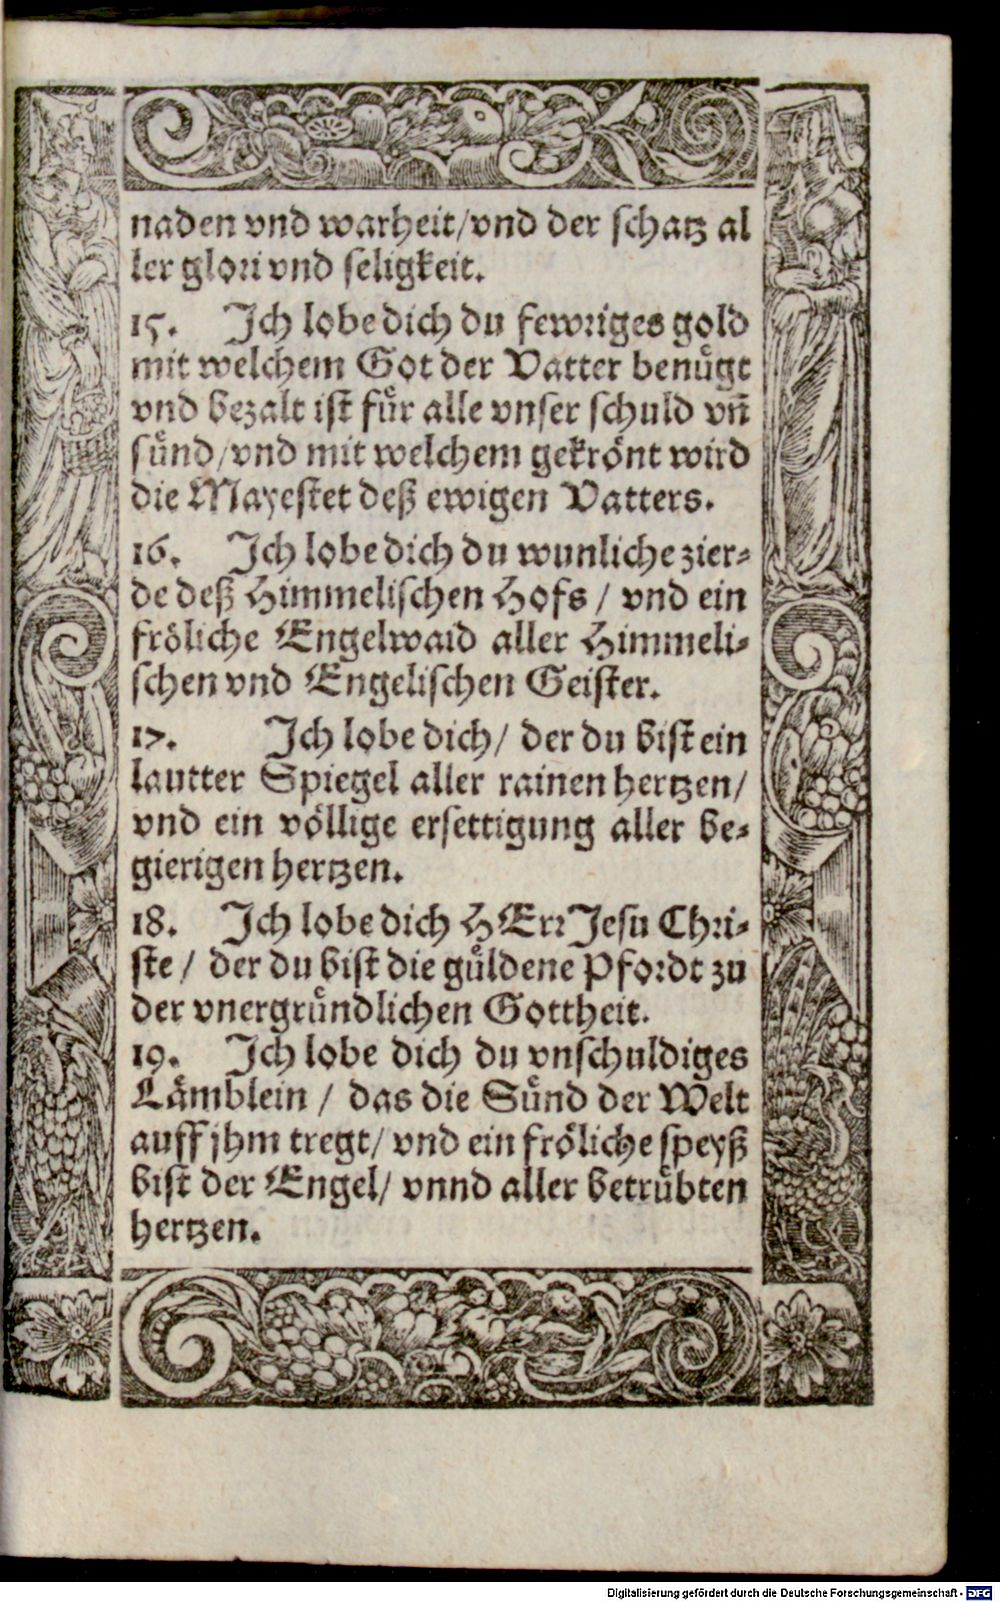 naden vnd warheit/vnd der schatz al
ler glori vnd seligkeit.
15. Ich lobe dich du fewriges gold
mit welchem Got der Vatter benuͤgt
vnd bezalt ist fuͤr alle vnser schuld vn̄
suͤnd/vnd mit welchem gekroͤnt wird
die Mayestet deß ewigen Vatters.
16. Ich lobe dich du wunliche zier⸗
de deß Himmelischen Hofs / vnd ein
froͤliche Engelwaid aller Himmeli⸗
schen vnd Engelischen Geister.
17. Ich lobe dich/ der du bist ein
lautter Spiegel aller rainen hertzen/
vnd ein voͤllige ersettigung aller be⸗
gierigen hertzen.
18. Ich lobe dich HErr Jesu Chri⸗
ste / der du bist die guͤldene Pfordt zu
der vnergruͤndlichen Gottheit.
19. Ich lobe dich du vnschuldiges
Laͤmblein / das die Suͤnd der Welt
auff jhm tregt/ vnd ein froͤliche speyß
bist der Engel/ vnnd aller betruͤbten
hertzen.
Digitalisierung gefördert durch die Deutsche Forschungsgemeinschaft - DFG